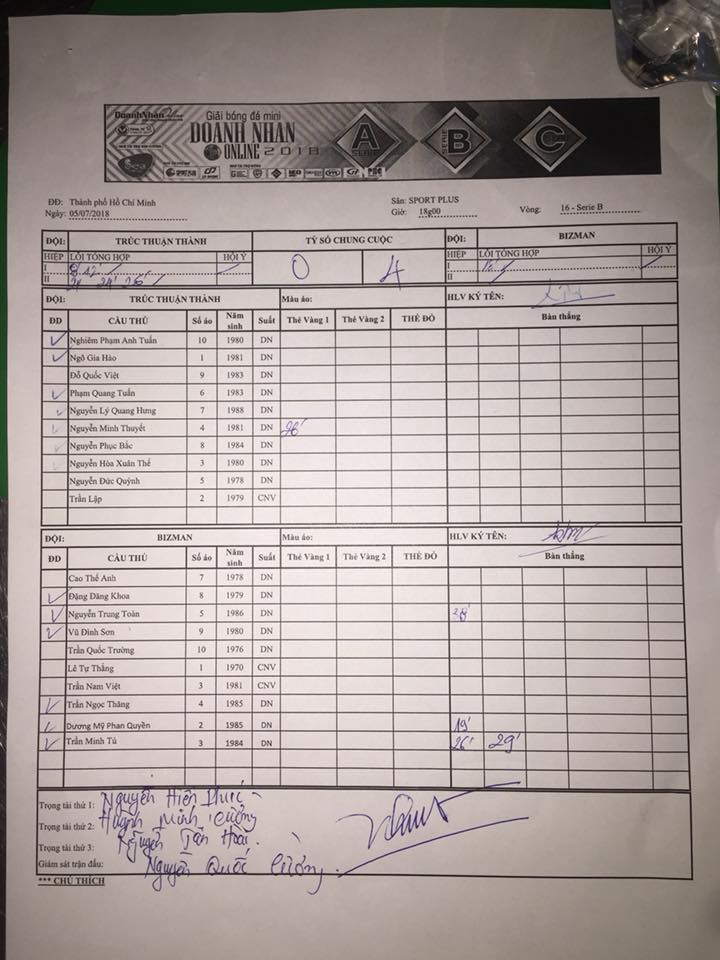 DoanhNhân
Giải bóng đá mini
DOANH NHÂN
ONLINE 2018
A SERIE
SERIE B
C
ĐĐ: Thành phố Hồ Chí Minh
Ngày: 05/07/2018
Sân: SPORT PLUS
Giờ: 18g00
Vòng: 16 - Serie B
ĐỘI: TRÚC THUẬN THÀNH TỶ SỐ CHUNG CUỘC ĐỘI: BIZMAN
HIỆP LỖI TỔNG HỢP HỘI Ý 0 4 HIỆP LỖI TỔNG HỢP HỘI Ý
I I
II 24' 26' II
ĐỘI: TRÚC THUẬN THÀNH Màu áo: HLV KÝ TÊN:
ĐD CẦU THỦ Số áo Năm sinh Suất Thẻ Vàng 1 Thẻ Vàng 2 THẺ ĐỎ Bàn thắng
Nghiêm Phạm Anh Tuấn 10 1980 DN
Ngô Gia Hào 1 1981 DN
Đỗ Quốc Việt 9 1983 DN
Phạm Quang Tuấn 6 1983 DN
Nguyễn Lý Quang Hưng 7 1988 DN
Nguyễn Minh Thuyết 4 1981 DN 26'
Nguyễn Phục Bắc 8 1984 DN
Nguyễn Hòa Xuân Thể 3 1980 DN
Nguyễn Đức Quỳnh 5 1978 DN
Trần Lập 2 1979 CNV
ĐỘI: BIZMAN Màu áo: HLV KÝ TÊN:
ĐD CẦU THỦ Số áo Năm sinh Suất Thẻ Vàng 1 Thẻ Vàng 2 THẺ ĐỎ Bàn thắng
Cao Thế Anh 7 1978 DN
Đặng Đăng Khoa 8 1979 DN
Nguyễn Trung Toàn 5 1986 DN 28'
Vũ Đình Sơn 9 1980 DN
Trần Quốc Trường 10 1976 DN
Lê Tự Thắng 1 1970 CNV
Trần Nam Việt 3 1981 CNV
Trần Ngọc Thăng 4 1985 DN
Dương Mỹ Phan Quyền 2 1985 DN 19'
Trần Minh Tú 3 1984 DN 26' 29'
Trọng tài thứ 1: Nguyễn Hiền
Trọng tài thứ 2: Huỳnh Minh Cường
Trọng tài thứ 3: Nguyễn Tấn Hoài
Giám sát trận đấu: Nguyễn Quốc Cường
*** CHÚ THÍCH